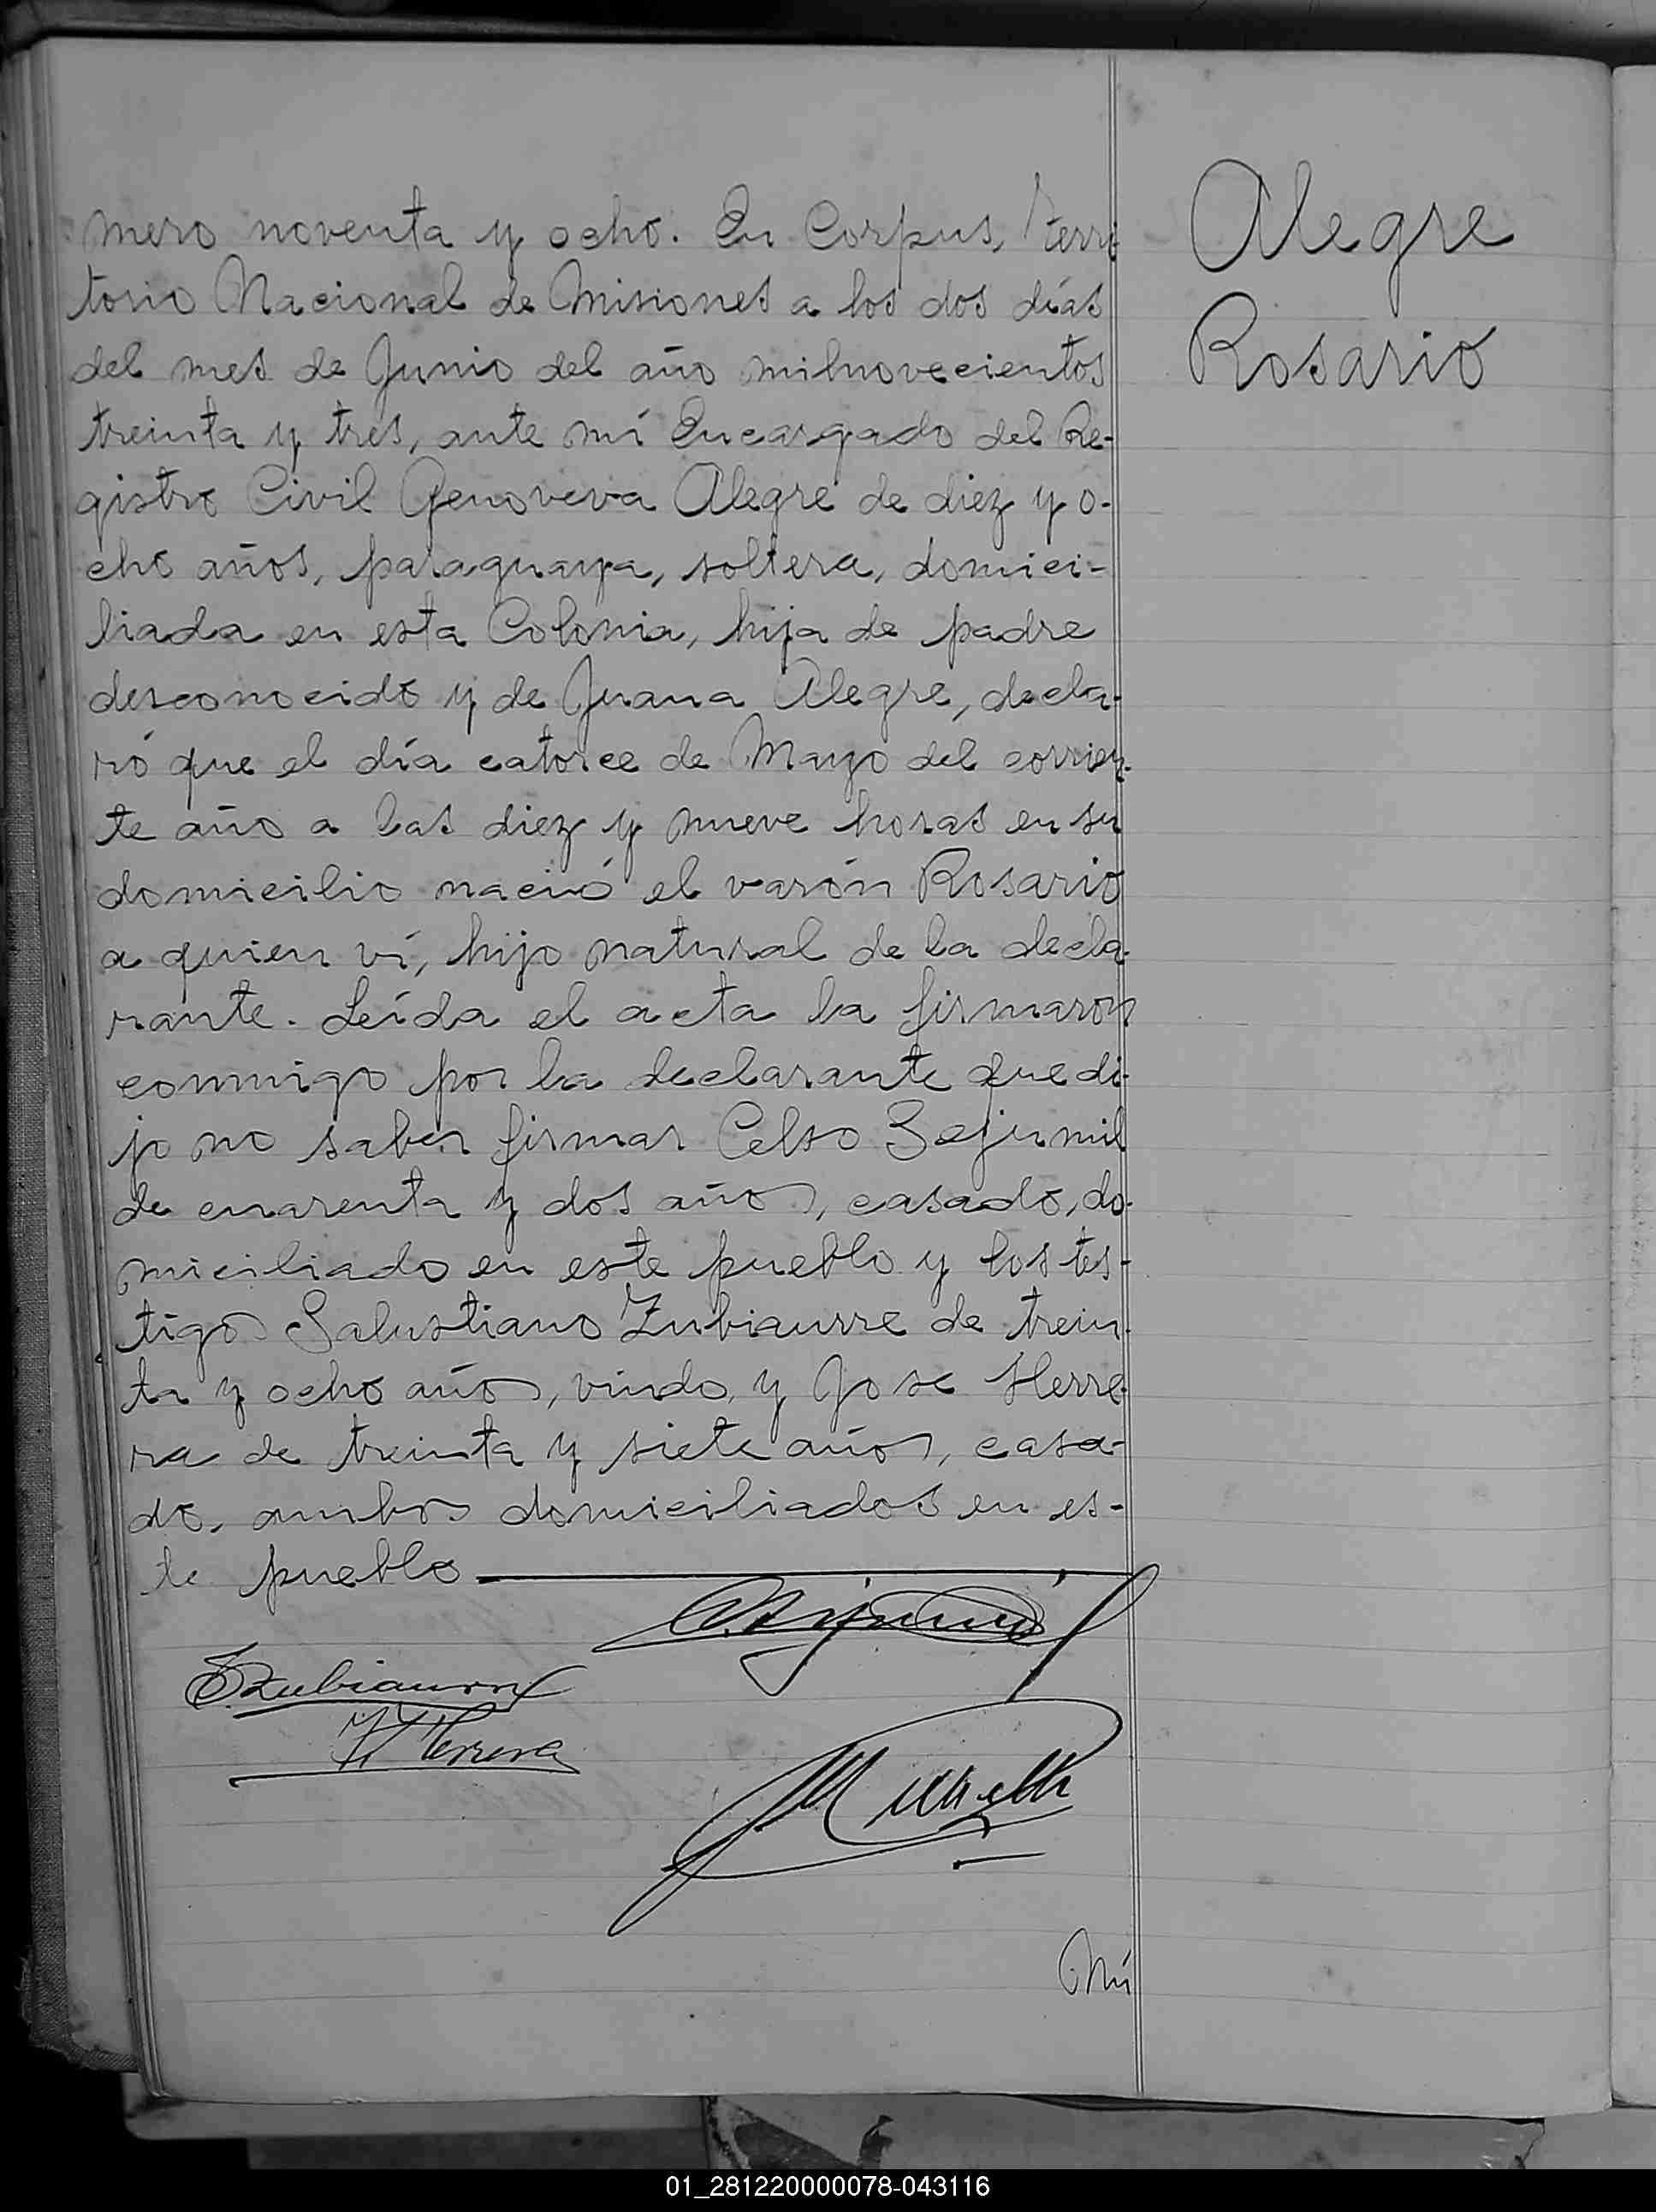 mero noventa y ocho. En Corpus, Terri
torio Nacional de Misiones a los dos días
del mes de Junio del año milnovecientos
treinta y tres, ante mí Encargado del Re-
gistro Civil Genoveva Alegre de diez y o-
cho años, paraguaya, soltera, domici-
liada en esta Colonia, hija de padre
desconocido y de Juana Alegre, decla-
ró que el día catorce de Mayo del corrien-
te año a las diez y nueve horas en su
domicilio nació el varón Rosario
a quien ví, hijo natural de la decla-
rante. Leída el acta la firmaron
conmigo por la declarante que di-
jo no saber firmar Celso Sejumil
de cuarenta y dos años, casado, do-
miciliado en este pueblo y los tes-
tigos Salustiano Zubiaurre de trein-
ta y ocho años, viudo, y Jose Herre-
ra de treinta y siete años, casa-
do, ambos domiciliados en es-
te pueblo
S. Zubiaurre
J. Herrera
Nú
Alegre
Rosario
01_281220000078-043116